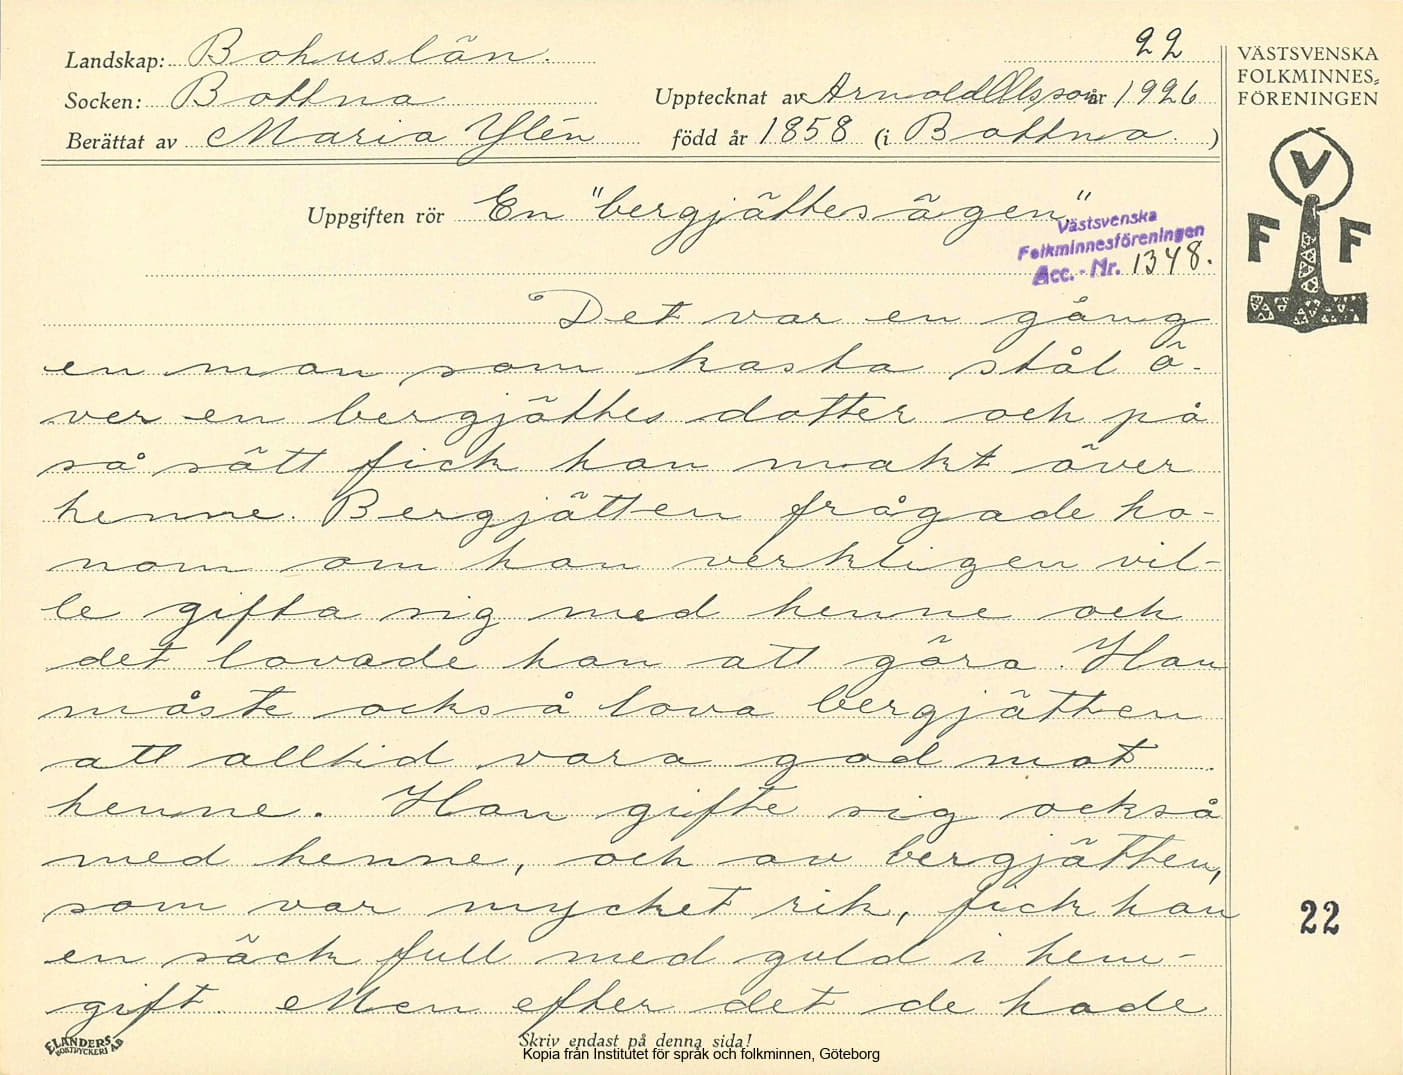 22
Landskap: Bohuslän.
Socken: Bottna
Upptecknat av Arnold Olsson år 1926
Berättat av Maria Ylén född år 1858 (i Bottna.)
VÄSTSVENSKA
FOLKMINNES-
FÖRENINGEN
V
F F
Uppgiften rör En "bergjättesägen"
Västsvenska
Folkminnesföreningen
Acc.-Nr. 1348.
Det var en gång
en man som kasta stål ö-
ver en bergjättes dotter och på
så sätt fick han makt över
henne. Bergjätten frågade ho-
nom om han verkligen vil-
le gifta sig med henne och
det lovade han att göra. Han
måste också lova bergjätten
att alltid vara god mot
henne. Han gifte sig också
med henne, och av bergjätten,
som var mycket rik, fick han
en säck full med guld i hem-
gift. Men efter det de hade
22
ELANDERS
BOKTRYCKERI AB
Skriv endast på denna sida!
Kopia från Institutet för språk och folkminnen, Göteborg